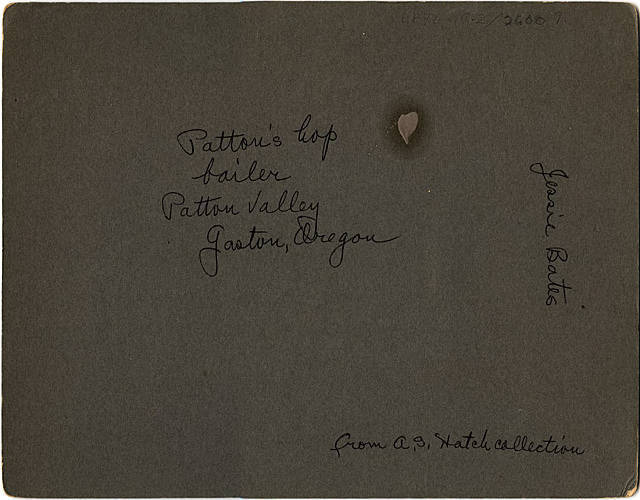 Patton's hop
bailer
Patton Valley
Gaston, Oregon
Jessie Bates
from A.S. Hatch collection